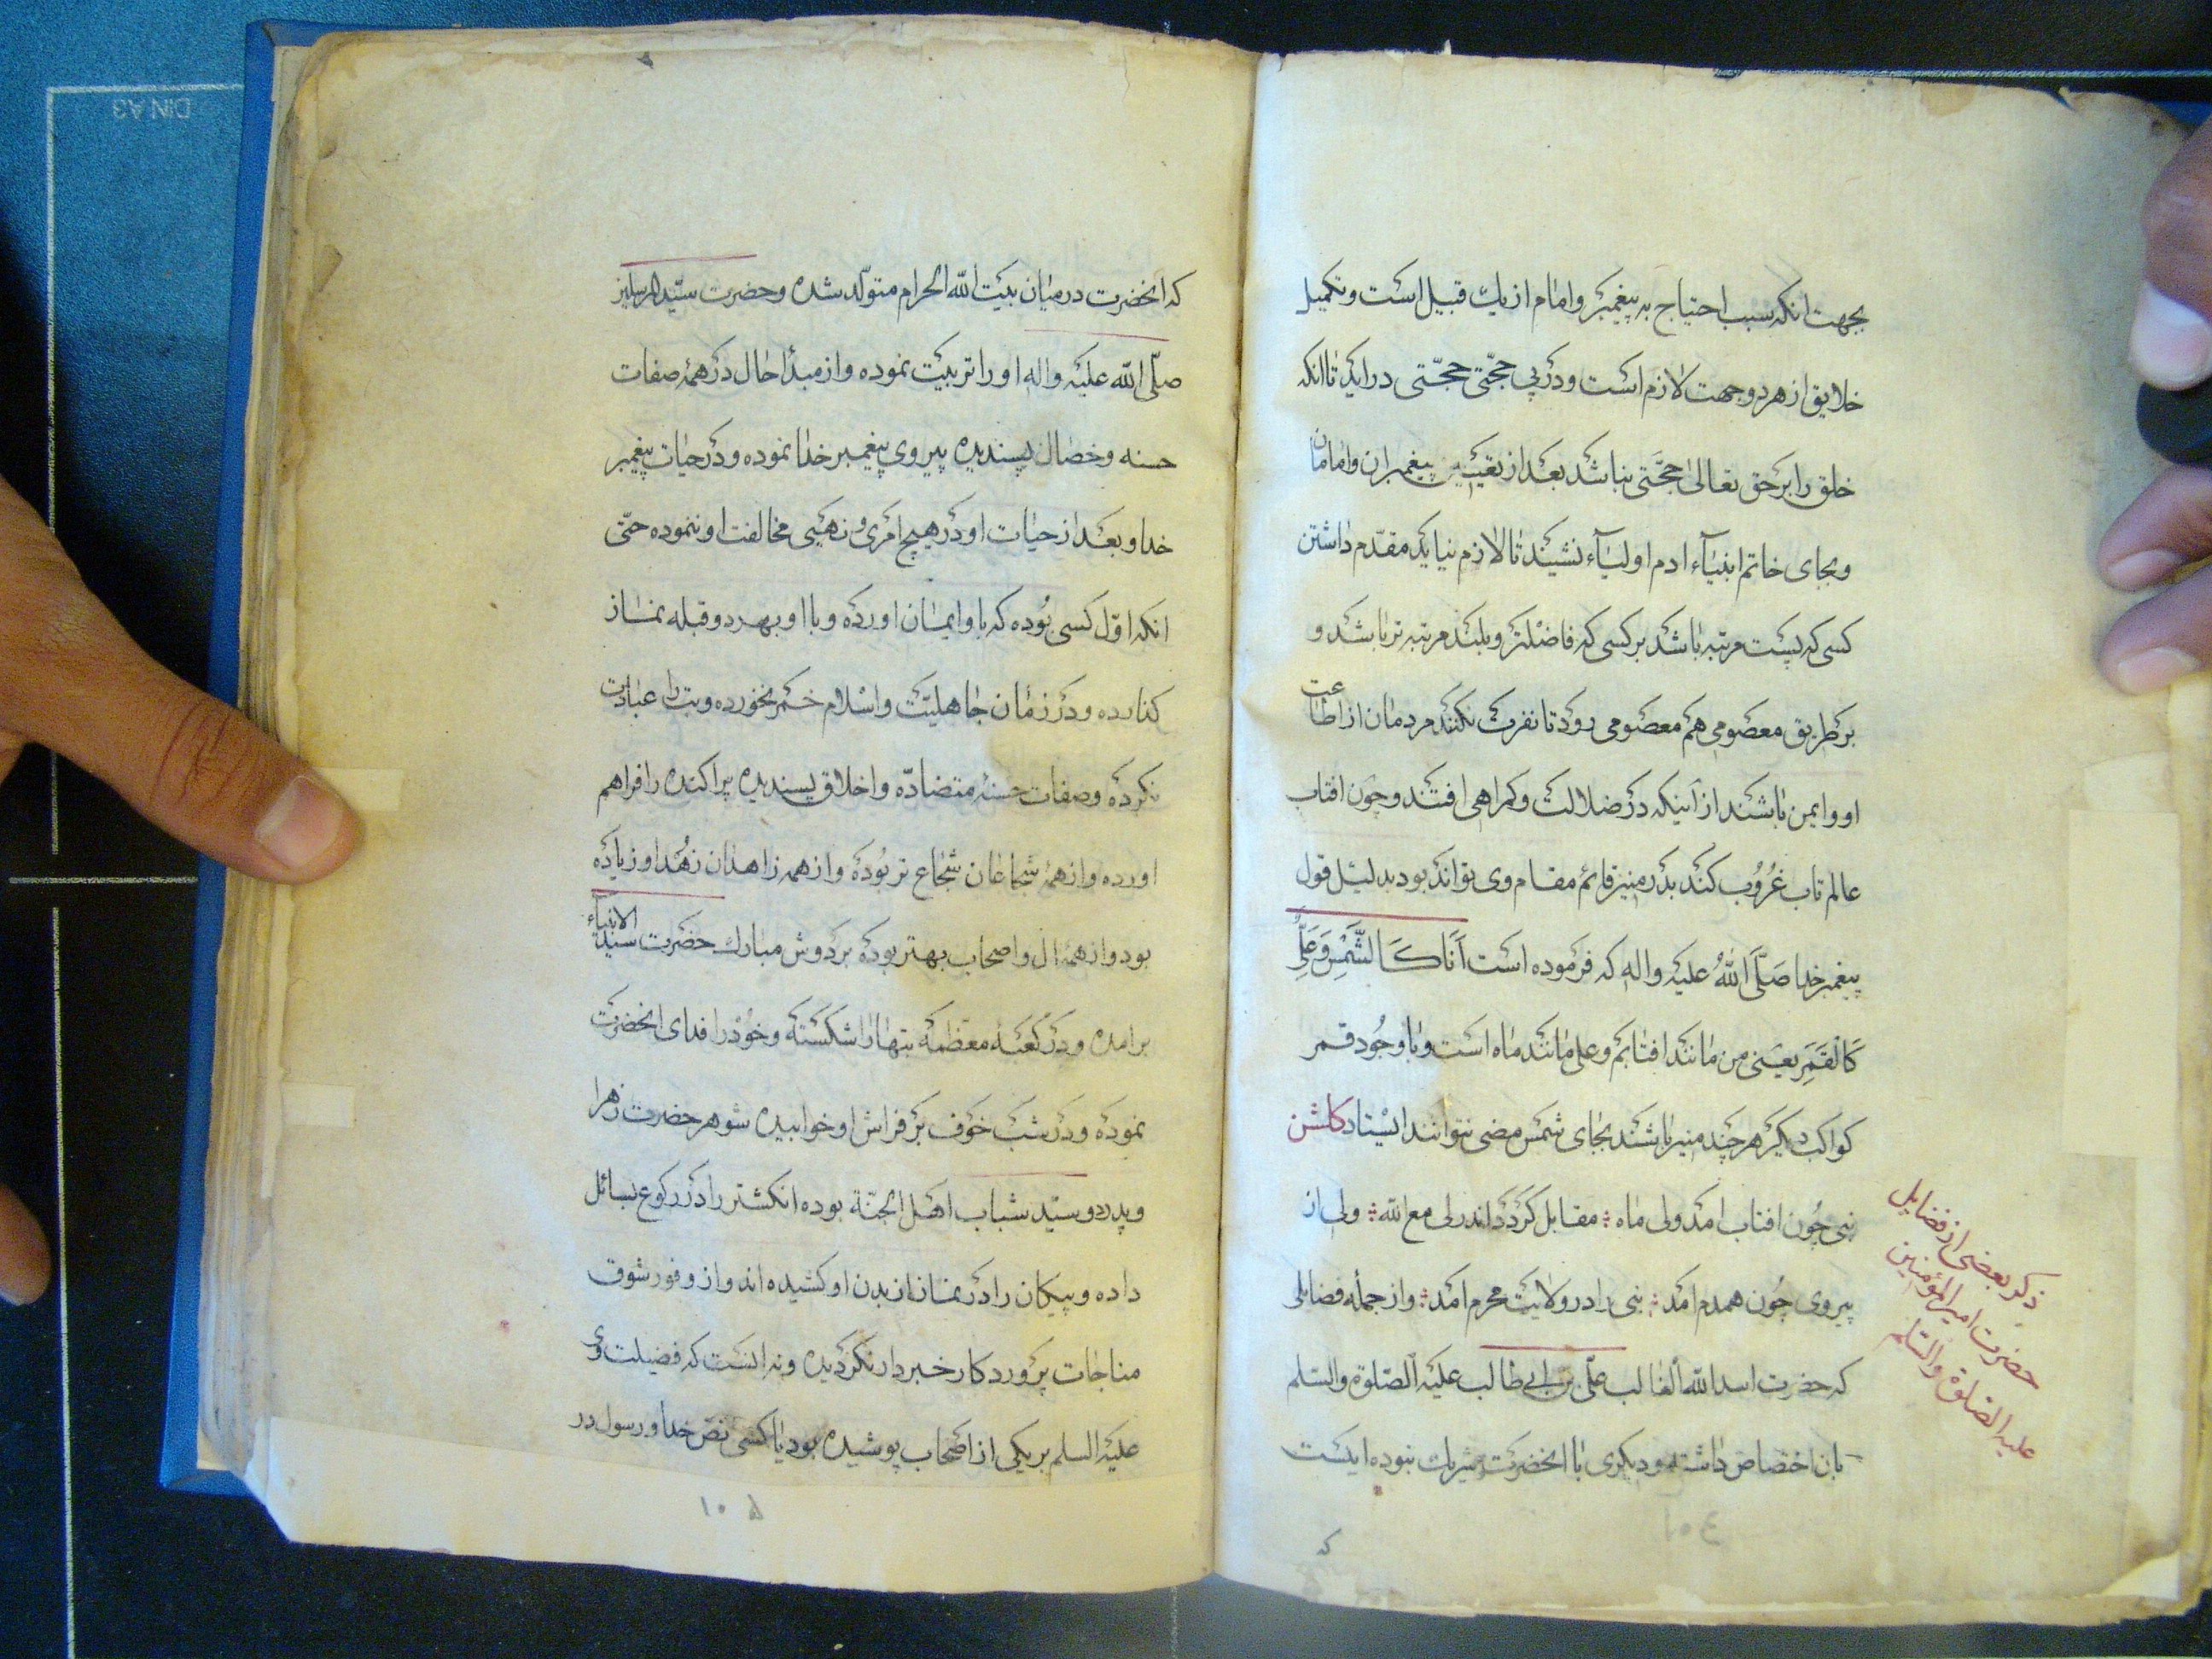 بجهت انکه سبب احتیاج به پیغمبر و امام از یك قبیل است و تکمیل
خلایق از هر دو جهت لازم است و در پی حجّتی حجّتی در اید تا انکه
خلق را بر حق تعالی حجّتی نباشد بعد از تعیین پیغمبران و امامان
و بجای خاتم انبیآء ادم اولیآء نشیند تا لازم نیاید مقدّم داشتن
کسی که پست مرتبه باشد بر کسی که فاضلتر و بلند مرتبه تر باشد و
بر طریق معصومی هم معصومی رود تا نفرت نکنند مردمان از اطاعت
او و ایمن باشند از اینکه در ضلالت و کمراهی افتند و چون افتاب
عالم تاب غُرُوب کند بدر منیر قائم مقام وی تواند بود بدلیل قول
پیغمبر خدا صَلَّی اللّٰهُ علیه واله که فرموده است اَنَا کَالشَّمْسِ وَ عَلِیٌّ
کَالْقَمَرِ یعنی من مانند افتابم و علی مانند ماه است و با وجُود قمر
کواکب دیکر هر چند منیر باشند بجای شمس مضی نتوانند ایستاد کلشن
نبی چُون افتاب امد ولی ماه ؞ مقابل کردد اندر لی مع الله ؞ ولی از
پیروی چُون همدم امد ؞ نبی را در ولایت محرم امد ؞ و از جملهٔ فضایلی
که حضرت اسد اللّٰه الغالب علی بن ابی طالب علیه الصّلوة والسّلم
بان اختصاص داشته و دیکری با انحضرت شریك نبوده اینست
که
ذکر بعضی از فضایل
حضرت امیر المؤمنین
علیه الصّلوة والسّلم
۱۰٤
که انحضرت در میان بیت اللّٰه الحرام متولّد شده و حضرت سیّد المرسلین
صلّی اللّٰه علیه واله او را تربیت نموده و از مبدأ حال در همهٔ صفات
حسنه و خصال پسندیده پیروی پیغمبر خدا نموده و در حیات پیغمبر
خدا و بعد از حیات او در هیچ امری و نهیی مخالفت او ننموده حتّی
انکه اوّل کسی بُوده که باو ایمان اورده و با او بهر دو قبله نماز
کذارده و در زمان جاهلیّت و اسْلام خمر نخورده و بت را عبادت
نکرده و صفات حسنهٔ متضادّه و اخلاق پسندیدهٔ پراکنده را فراهم
اورده و از همهٔ شجاعان شجاع تر بُوده و از همه زاهدان زُهْد او زیاده
بود و از همهٔ ال و اصحاب بهتر بوده بر دوش مبارك حضرت سیّد الانبیآء
برامده و در کعبهٔ معظّمه بتها را شکسته و خُود را فدای انحضرت
نموده و در شب خوف بر فراش او خوابیده شوهر حضرت زهرا
و پدر دو سیّد شباب اهل الجنّة بوده انکشتر را در رکوع بسائل
داده و پیکان را در نماز از بدن او کشیده اند و از وفور شوق
مناجات پروردکار خبردار نکردیده و نه انست که فضیلت وی
علیه السلم بر یکی از اصحاب پوشیده بود یا کسی نصّ خدا و رسول در
۱۰۵